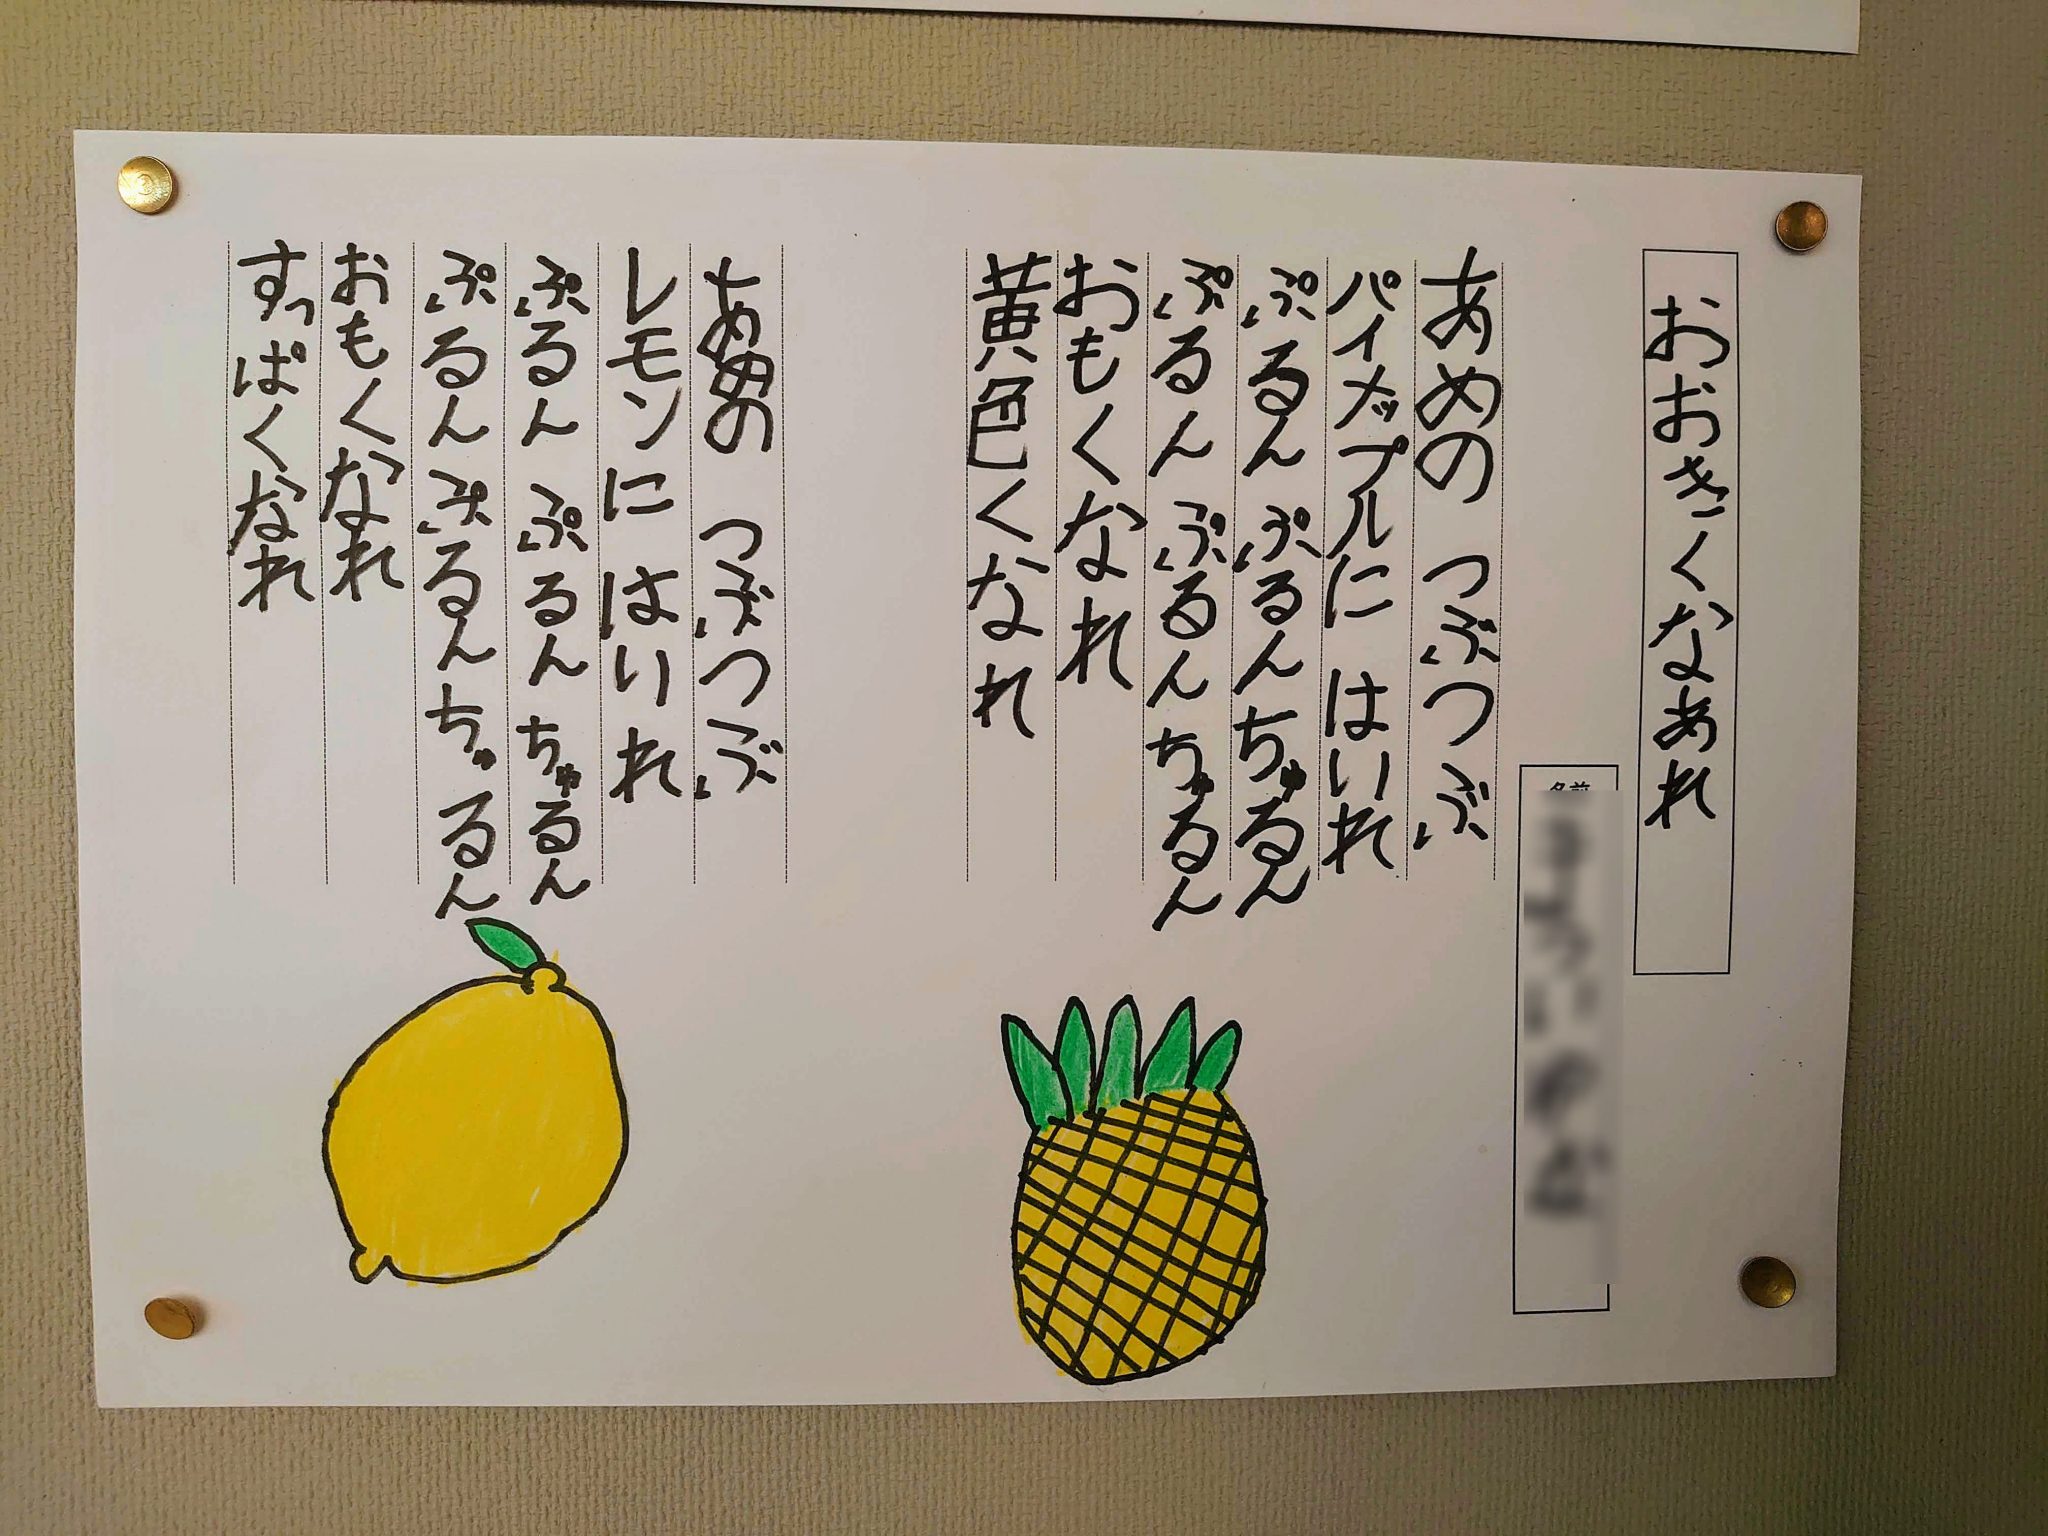 おおきくなあれ
名前
あめの つぶつぶ
パイメップルに はいれ
ぷるん ぷるんちゅるん
ぷるん ぷるんちゅるん
おもくなれ
黄色くなれ
あめの つぶつぶ
レモンに はいれ
ぷるん ぷるん ちゅるん
ぷるん ぷるんちゅるん
おもくなれ
すっぱくなれ